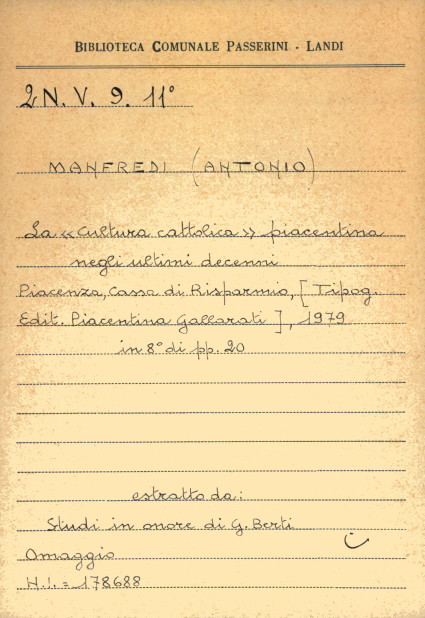 BIBLIOTECA COMUNALE PASSERINI - LANDI
2 N. V. 9. 11°
MANFREDI (ANTONIO)
La «cultura cattolica» piacentina
negli ultimi decenni
Piacenza, Cassa di Risparmio, [Tipog.
Edit. Piacentina Gallarati], 1979
in 8° di pp. 20
estratto da:
Studi in onore di G. Berti
Omaggio
N.i. = 178688